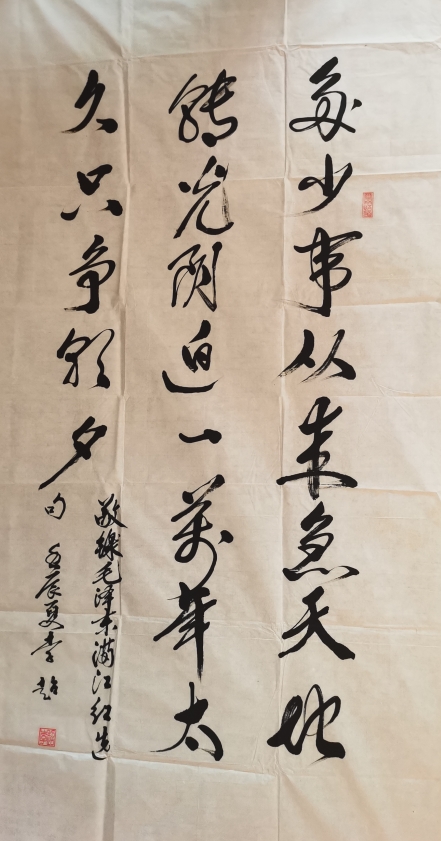 多少事从来急天地
轉光阴迫一萬年太
久只争朝夕
敬録毛泽东满江红选
句 壬辰夏李